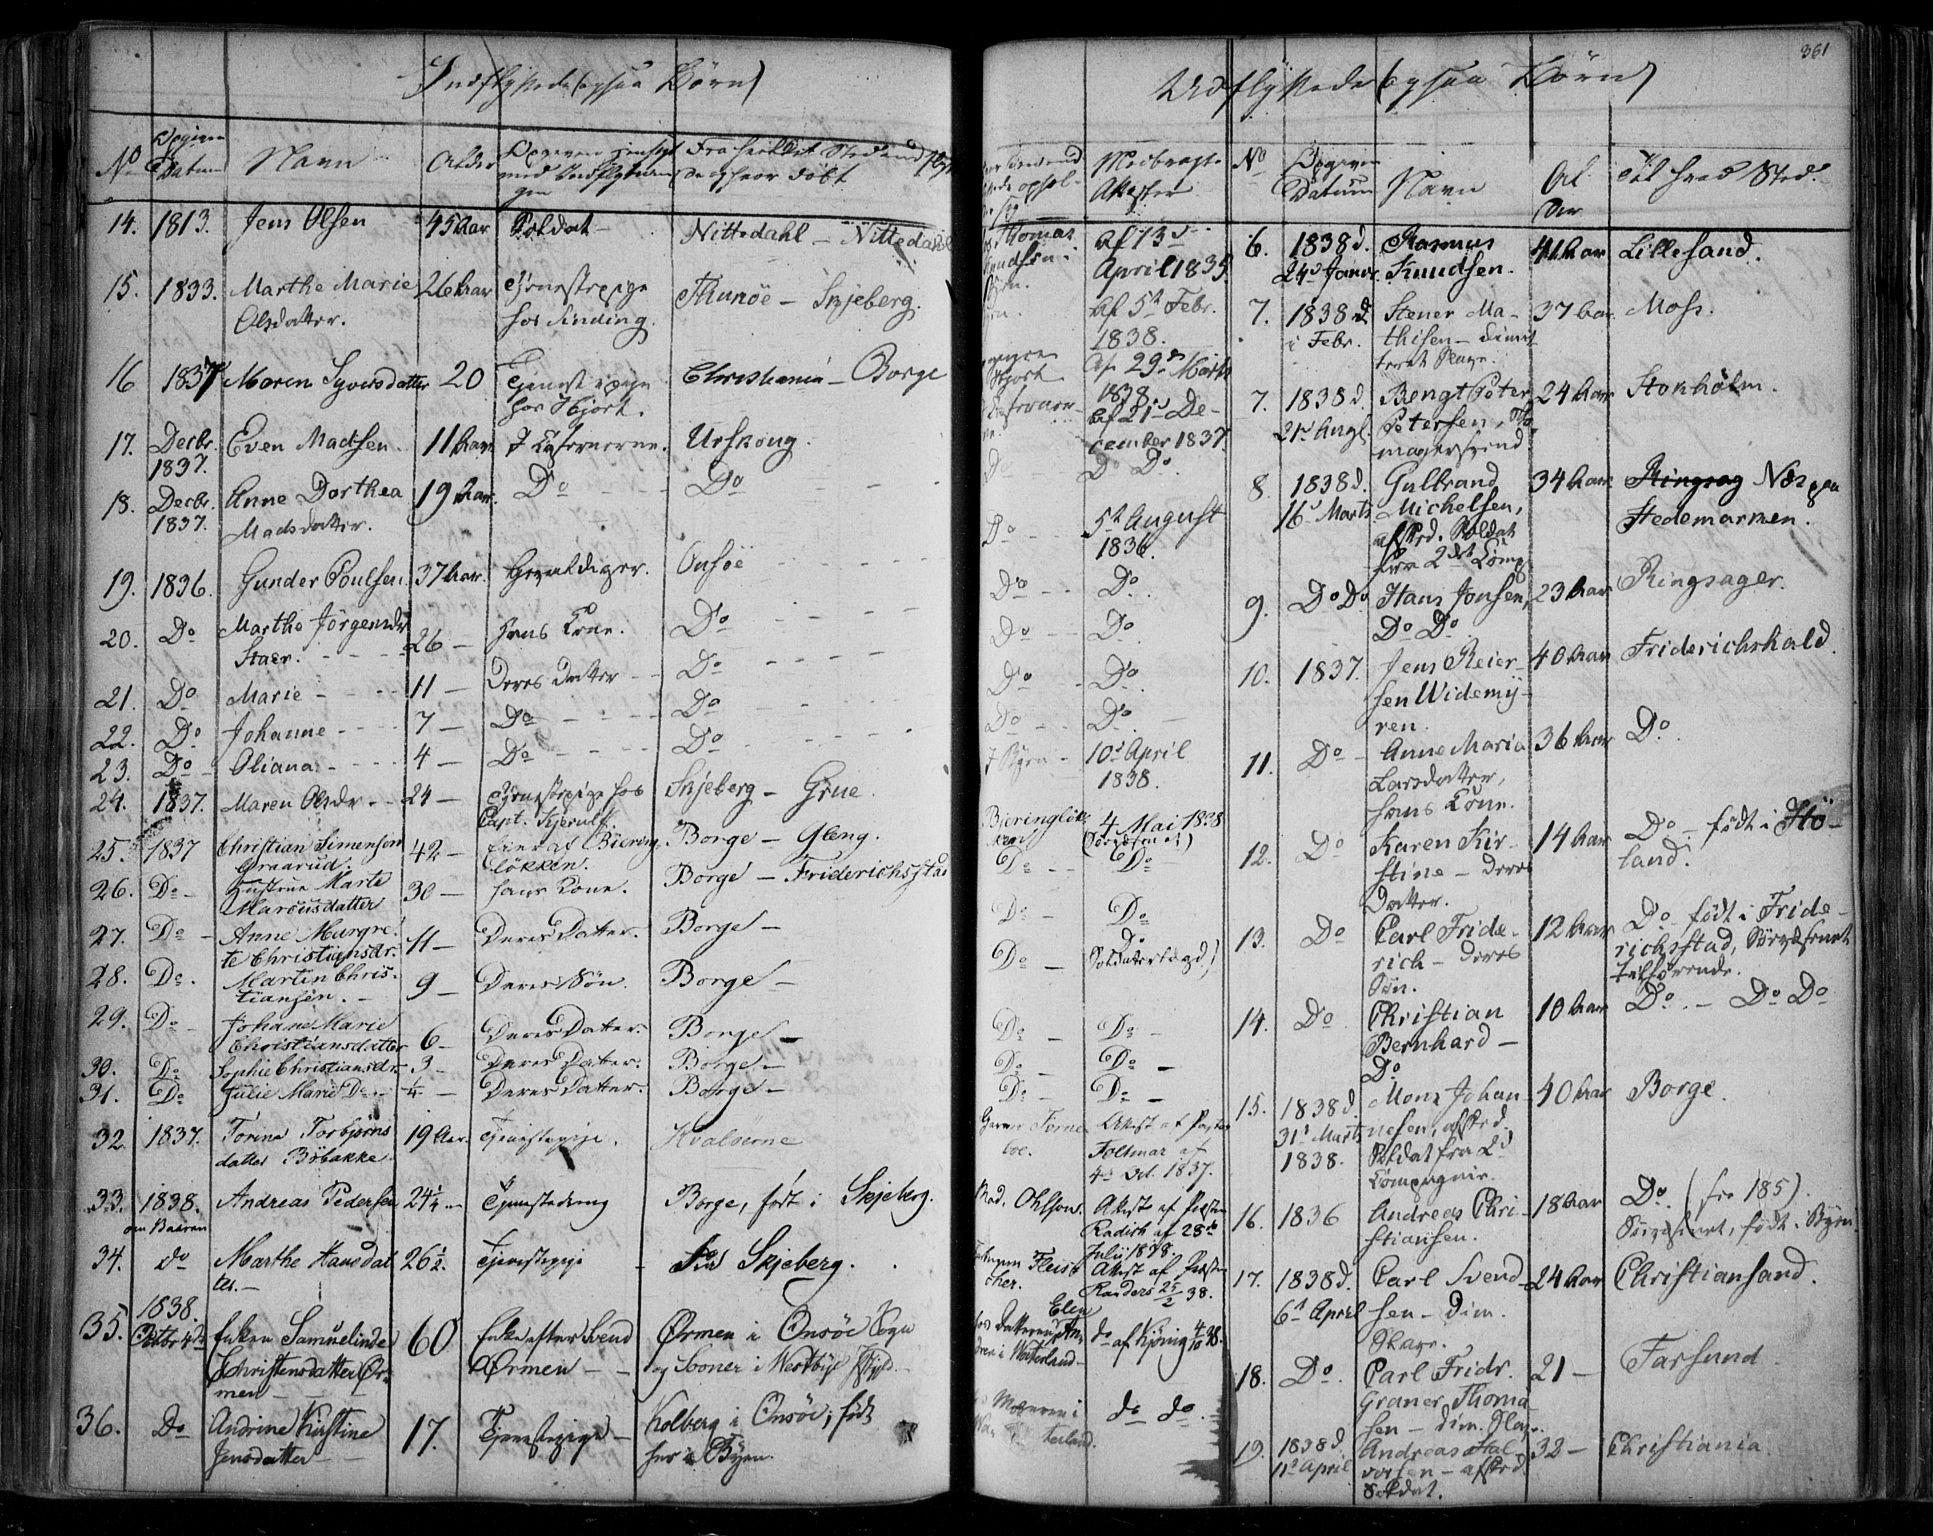 361
Indflyttede (ogsaa Børn)
No Opgiven Datum Navn Alder
14. 1813. Jens Olsen 45 Aar Soldat Nittedahl – Nittedahl
15. 1833. Marthe Marie Olsdatter. 26 Aar Tjenestepige hos Sinding. Thunöe – Skjeberg.
16 1837 Maren Syversdatter 20 Tjenestepige hos Hjort. Christiania – Borge
17. Decbr. 1837. Even Madsen 11 Aar I Casernerne. Urskoug.
18. Decbr. 1837. Anne Dorthea Madsdatter. 19 Aar. Do Do
19. 1836. Gunder Poulsen. 37 Aar. Gevaldiger. Onsöe
20. Do Marthe Jörgensdr Staer. 26 – hans Kone. Do
21. Do Marie 11 – Deres Datter Do
22. Do Johanne 7 – Do Do
23. Do Oliana 4 – Do Do
24. 1837. Maren Olsdr 24 – Tjenestepige hos Capt. Kjerulf Skjeberg – Grue.
25. 1837 Christian Simensen Graarud. 42 – Eier af Biering Løkken. Borge – Gleng.
26. Do Hustrue Marte Marcusdatter 30 – hans Kone. Borge – Friderichsstad
27. Do Anne Margrete Christiansdr. 11 – Deres Datter. Borge –
28. Do. Martin Christiansen. 9 – Deres Søn. Borge –
29. Do Johane Marie Christiansdatter 6 – Deres Datter. Borge –
30. Do Sophie Christiansdr 3 – Deres Datter. Borge –
31. Do Julie Marie Do ¼ – Deres Datter. Borge –
32. 1837. Torine Torbjørnsdatter Böbakke 19 Aar. Tjenestepige. Kvalverne
33. 1838. om Vaaren Andreas Pedersen 24½ Tjenestedreng Borge, født i Skjeberg.
34. do Marthe Hansdatter. 26½. Tjenestepige Fra Skjeberg.
35. 1838. Octbr 4de Enken Samuelinde Christensdatter Ørmen 60 Enke efter Svend Ørmen Ørmen i Onsöe Sogn og Sooner i Westbye
36. Do Andrine Kirstine Jensdatter 17. Tjenestepige Kolberg i Onsöe; født her i Byen.
Medbragte Attester
Thomas Knudsen. Af 13d April 1835
Af 5te Febr. 1838.
Hjort Af 29de Marts 1838.
Af 21d December 1837.
Do Do Do.
Do 5te August 1836.
Do Do.
Do Do
Do Do
Do Do
I Byen 10d April 1838.
Bieringløkken 4 Mai 1838
Do Do
Do Do
Do Do
Do Do
Do Do
Do Do
Attest af Pastor Foltmar af 4de Oct. 1837.
Mad. Ohlson. Attest af Præsten Radich af 28de Julii 1838.
Fleischer. Attest af Præsten Randers 25/2 38.
hos Datteren Elen i Waterland do af Kjönig 4/10 38.
Moderen i Waterland. do do
Udflyttede (ogsaa Børn)
No Opgiven Datum Navn Alder Til hvad Sted.
6. 1838 d. 24d Januar Rasmus Knudsen. 41 Aar Lillesand.
7. 1838 d. i Febr. Stener Mathisen – dimitteret Slave. 37 Aar Moss.
7. 1838 d 21d Augl. Bengt Peter Petersen, 24 Aar Stokholm.
8. 1838 d. 16d Marts Gulbrand Michelsen, afsked. Soldat fra 2det Comp. 34 Aar Ringsag Næs paa Hedemarken.
9. Do Do Hans Jonsen, Do Do 23 Aar Ringsager.
10. 1837. Jens Reiersen Widemÿren. 40 Aar Friderichshald.
11. Do Anne Maria Larsdatter, hans Kone. 36 Aar Do.
12. Do Karen Kirstine – deres Datter. 14 Aar Do – født i Höland.
13. Do Carl Friderich – deres Søn. 12 Aar Do, født i Friderichsstad, Søgnet tilhørende.
14. Do Christian Bernhard – Do 10 Aar Do. – Do Do
15. 1838 d. 31d Marts 1838. Mons Johannesen, afsked. Soldat fra 2d Compagnie. 40 Aar Borge.
16. 1836 Andreas Christiansen. 18 Aar Do. født i Byen
17. 1838 d. 6d April Carl Svendsen – dim. Slave. 24 Aar Christiansand.
18. Do. Carl Fridr. Graner Thomasen – dim. Slave. 21 – Farsund
19. 1838 d. 11d April Andreas Halvorsen – afsked Soldat. 32 – Christiania.